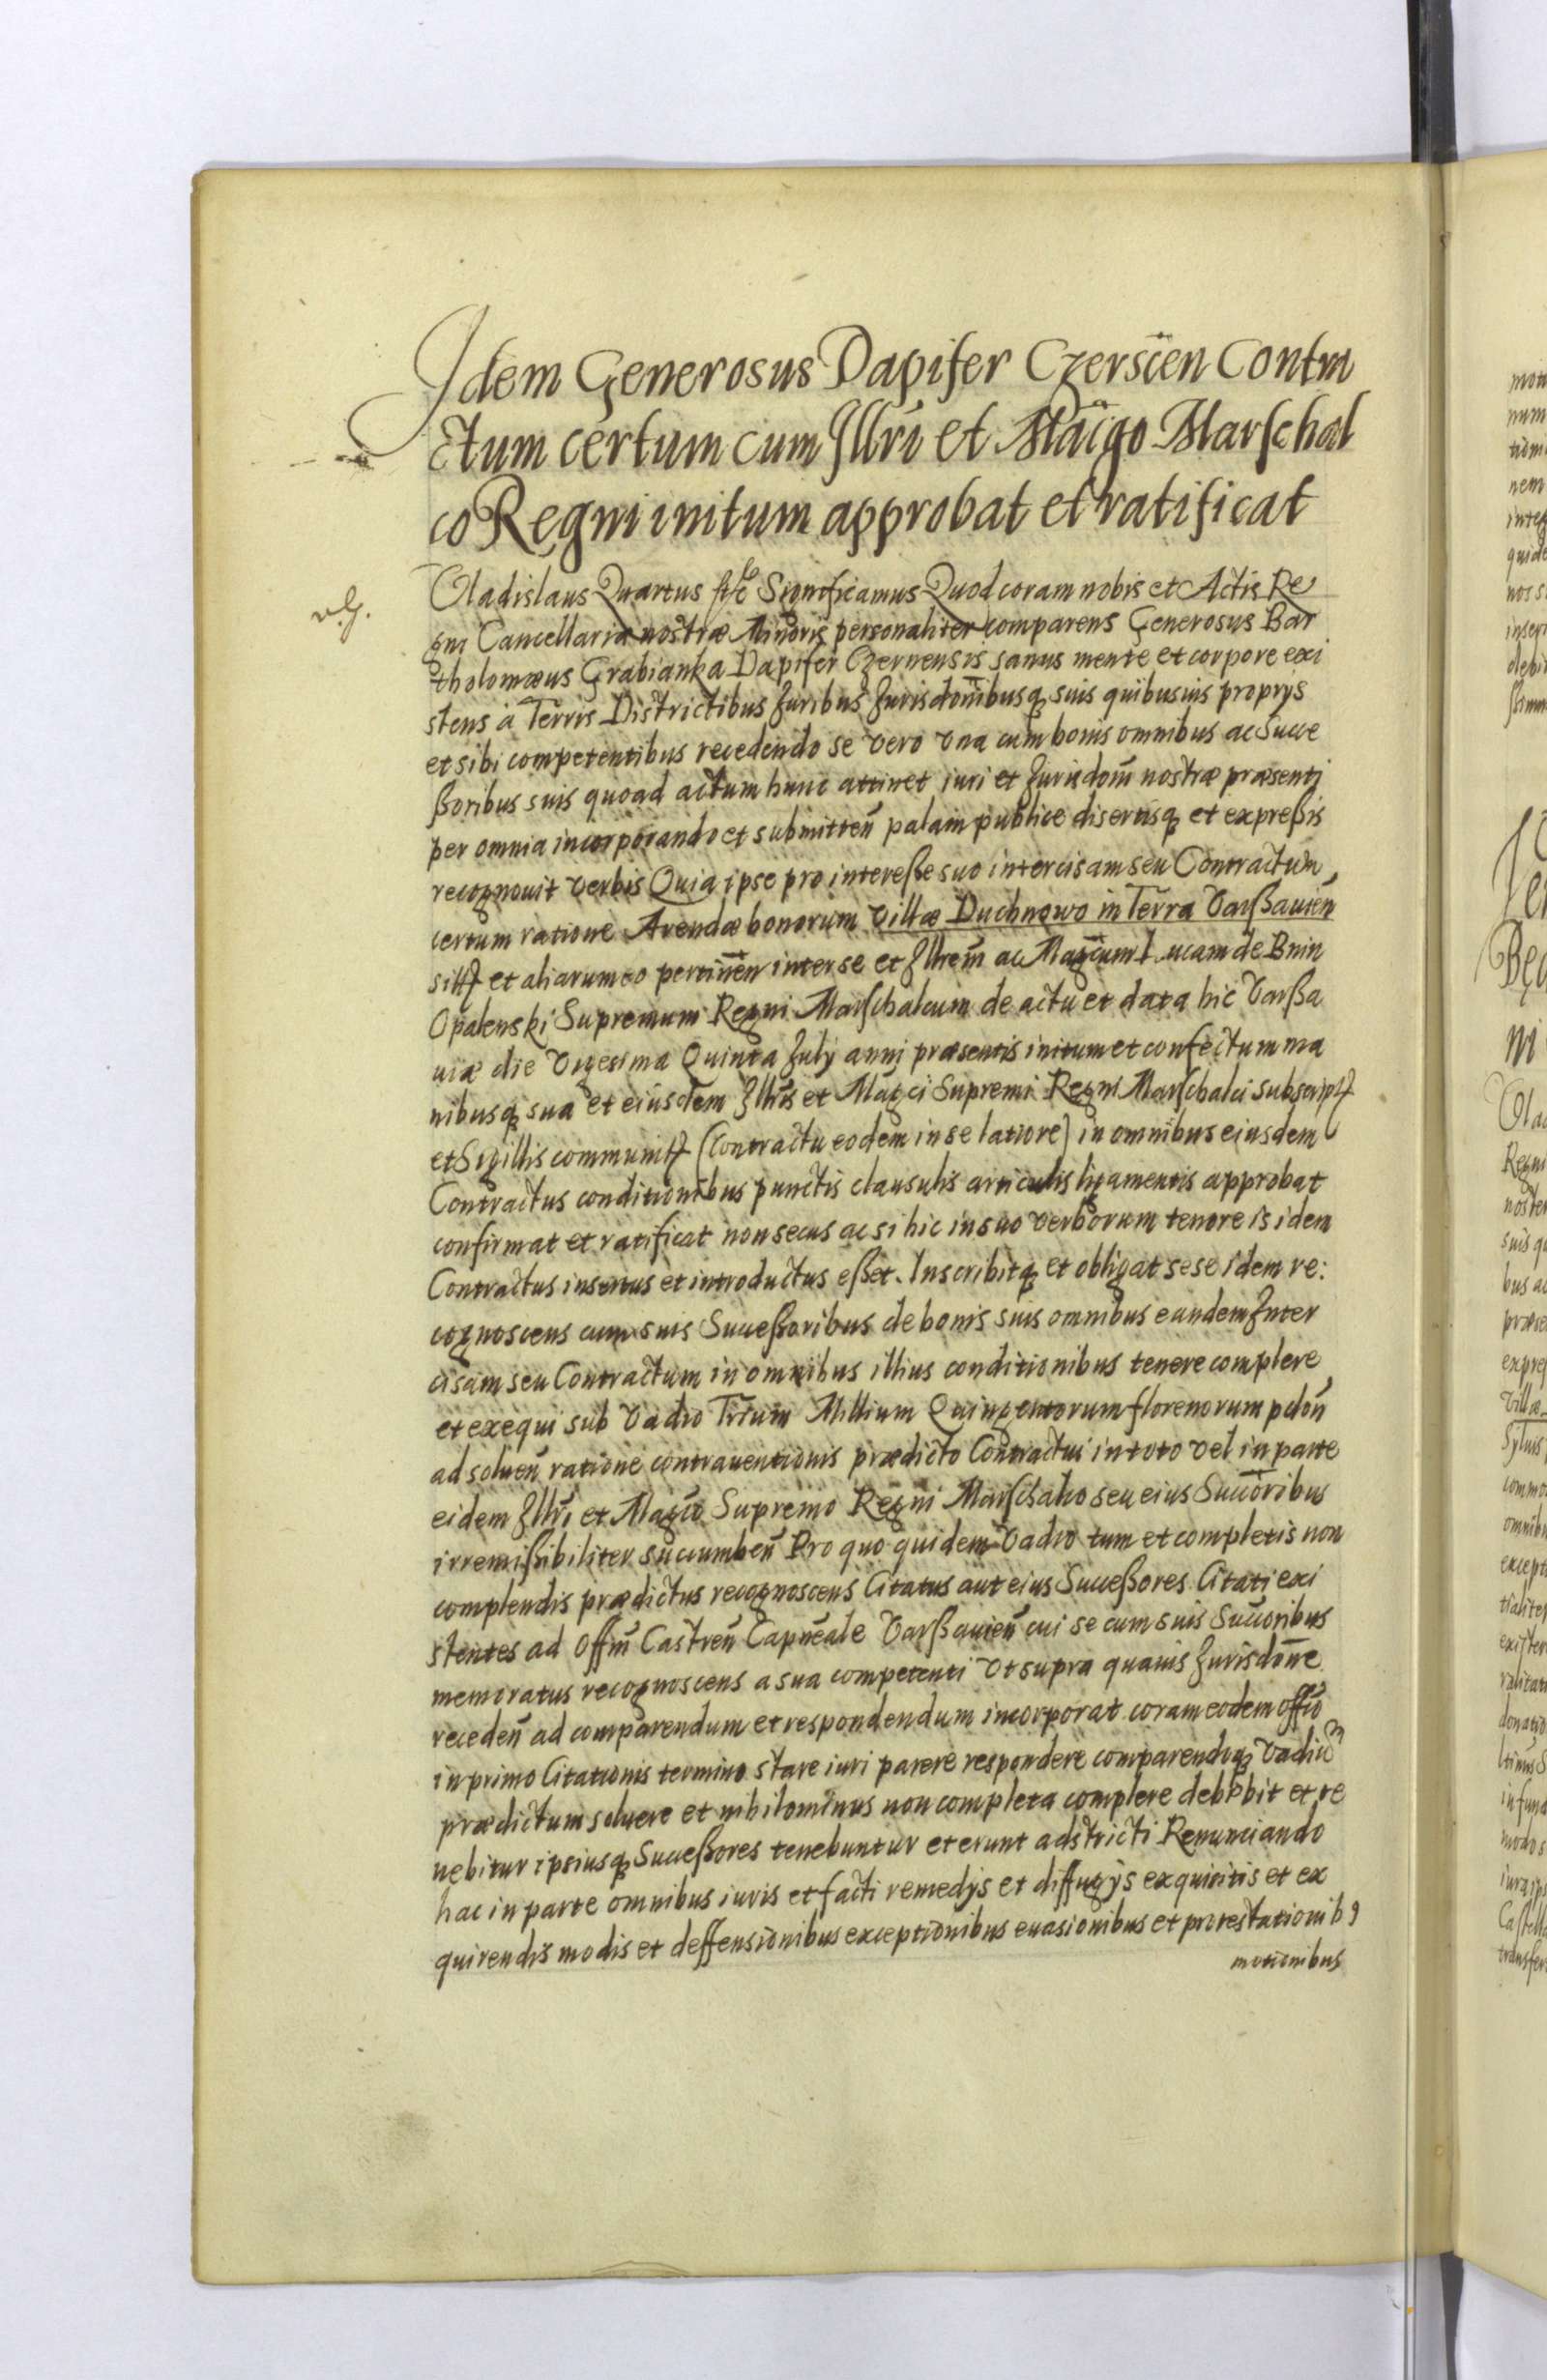 Idem Generosus Dapifer Czerscen Contra
ctum certum cum Illri et Magco Marschal
co Regni initum approbat et ratificat
Vladislaus Quartus Significamus Quod coram nobis et Actis Re
gni Cancellariæ nostræ Minoris personaliter comparens Generosus Bar
tholomæus Grabianka Dapifer Czernensis sanus mente et corpore exi
stens à Terris Districtibus Iuribus Iurisdonibusq suis quibusuis proprys
et sibi competentibus recedendo se vero vna cum bonis omnibus ac Succe
ßoribus suis quoad actum hunc attinet iuri et Iurisdoni nostræ præsenti
per omnia incorporando et submitten palam publice disertisq et expreßis
recognouit verbis Quia ipse pro intereße suo intercisam seu Contractum
certum ratione Arendæ bonorum villæ Duchnowo in Terra Varßauien
sitt et aliarum eo pertinen inter se et Illrem ac Magcum Lucam de Bnin
Opalenski Supremum Regni Marschalcum de actu et data hic Varßa
uiæ die Vigesima Quinta July anni præsentis initum et confectum ma
nibusq sua et eiusdem Illris et Magci Supremi Regni Marschalci subscript
et Sigillis communit (Contractu eodem in se latiore) in omnibus eiusdem
Contractus conditionibus punctis clausulis articulis ligamentis approbat
confirmat et ratificat non secus ac si hic in suo verborum tenore is idem
Contractus insertus et introductus eßet. Inscribitq et obligat sese idem re:
cognoscens cum suis Succeßoribus de bonis suis omnibus eandem Inter
cisam seu Contractum in omnibus illius conditionibus tenere complere
et exequi sub Vadio Trium Millium Quingentorum florenorum pclon
ad soluen ratione contrauentionis prædicto Contractui in toto vel in parte
eidem Illri et Magco Supremo Regni Marschalco seu eius Succoribus
irremißibiliter succumben Pro quo quidem Vadio tum et completis non
complendis prædictus recognoscens Citatus aut eius Succeßores Citati exi
stentes ad Offm Castren Capneale Varßauien cui se cum suis Succoribus
memoratus recognoscens a sua competenti vt supra quauis Iurisdone
receden ad comparendum et respondendum incorporat coram eodem offio
in primo Citationis termino stare iuri parere respondere comparendoq Vadiu
prædictum soluere et nihilominus non completa complere debebit et te
nebitur ipsiusq Succeßores tenebuntur et erunt adstricti Renunciando
hac in parte omnibus iuris et facti remedys et diffugys exquisitis et ex
quirendis modis et deffensionibus exceptionibus euasionibus et protestationib9
motionibus